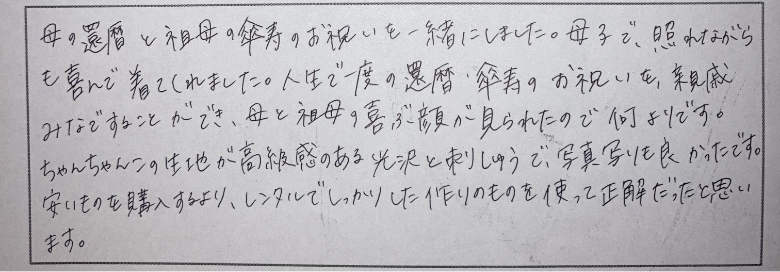 母の還暦と祖母の傘寿のお祝いを一緒にしました。母子で、照れながら
も喜んで着てくれました。人生で一度の還暦・傘寿のお祝いを、親戚
みなですることができ、母と祖母の喜ぶ顔が見られたので何よりです。
ちゃんちゃんこの生地が高級感のある光沢と刺しゅうで、写真写りも良かったです。
安いものを購入するより、レンタルでしっかりした作りのものを使って正解だったと思い
ます。